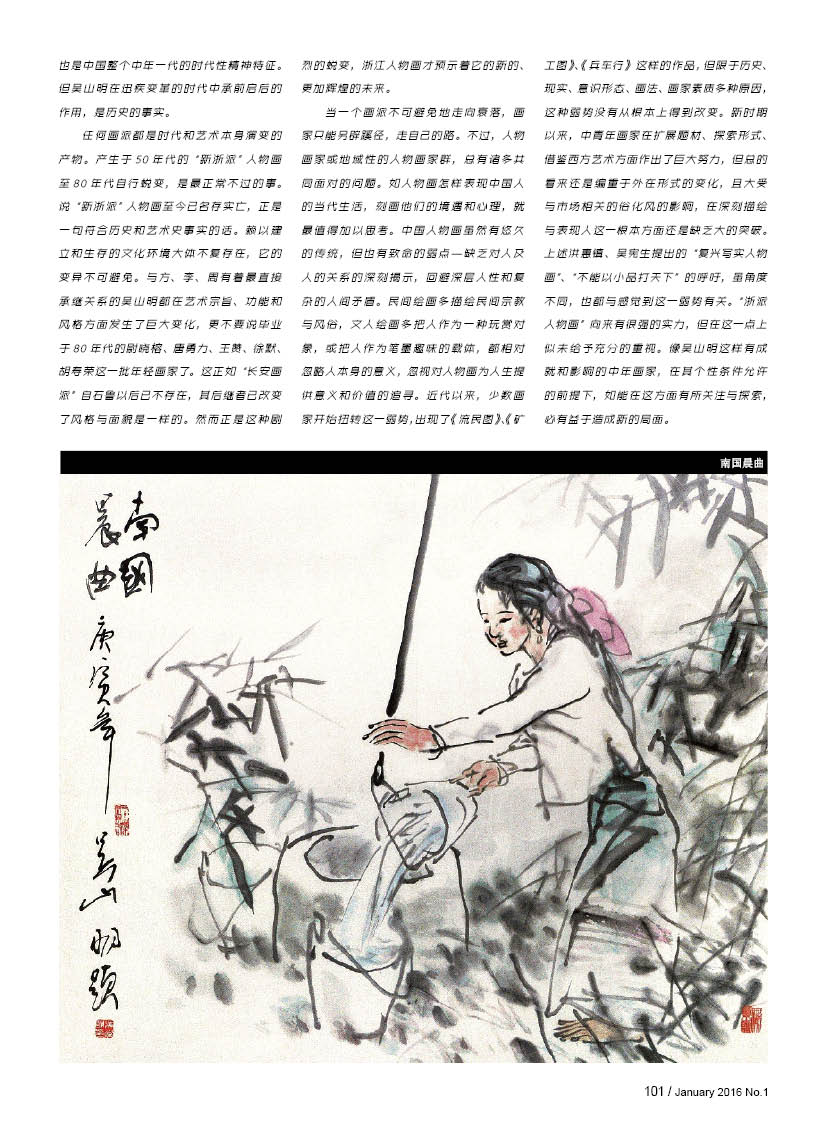 也是中国整个中年一代的时代性精神特征。
但吴山明在迅疾变革的时代中承前启后的
作用，是历史的事实。
任何画派都是时代和艺术本身演变的
产物。产生于50年代的“新浙派”人物画
至80年代自行蜕变，是最正常不过的事。
说“新浙派”人物画至今已名存实亡，正是
一句符合历史和艺术史事实的话。赖以建
立和生存的文化环境大体不复存在，它的
变异不可避免。与方、李、周有着最直接
承继关系的吴山明都在艺术宗旨、功能和
风格方面发生了巨大变化，更不要说毕业
于80年代的尉晓榕、唐勇力、王赞、徐默、
胡寿荣这一批年轻画家了。这正如“长安画
派”自石鲁以后已不存在，其后继者已改变
了风格与面貌是一样的。然而正是这种剧
烈的蜕变，浙江人物画才预示着它的新的、
更加辉煌的未来。
当一个画派不可避免地走向衰落，画
家只能另辟蹊径，走自己的路。不过，人物
画家或地域性的人物画家群，总有诸多共
同面对的问题。如人物画怎样表现中国人
的当代生活，刻画他们的境遇和心理，就
最值得加以思考。中国人物画虽然有悠久
的传统，但也有致命的弱点—缺乏对人及
人的关系的深刻揭示，回避深层人性和复
杂的人间矛盾。民间绘画多描绘民间宗教
与风俗，文人绘画多把人作为一种玩赏对
象，或把人作为笔墨趣味的载体，都相对
忽略人本身的意义，忽视对人物画为人生提
供意义和价值的追寻。近代以来，少数画
家开始扭转这一弱势，出现了《流民图》、《矿
工图》、《兵车行》这样的作品，但限于历史、
现实、意识形态、画法、画家素质多种原因，
这种弱势没有从根本上得到改变。新时期
以来，中青年画家在扩展题材、探索形式、
借鉴西方艺术方面作出了巨大努力，但总的
看来还是偏重于外在形式的变化，且大受
与市场相关的俗化风的影响，在深刻描绘
与表现人这一根本方面还是缺乏大的突破。
上述洪惠镇、吴宪生提出的“复兴写实人物
画”、“不能以小品打天下”的呼吁，虽角度
不同，也都与感觉到这一弱势有关。“浙派
人物画”向来有很强的实力，但在这一点上
似未给予充分的重视。像吴山明这样有成
就和影响的中年画家，在其个性条件允许
的前提下，如能在这方面有所关注与探索，
必有益于造成新的局面。
南国晨曲
南國
晨曲
庚寅年
吴山明题
101 / January 2016 No.1